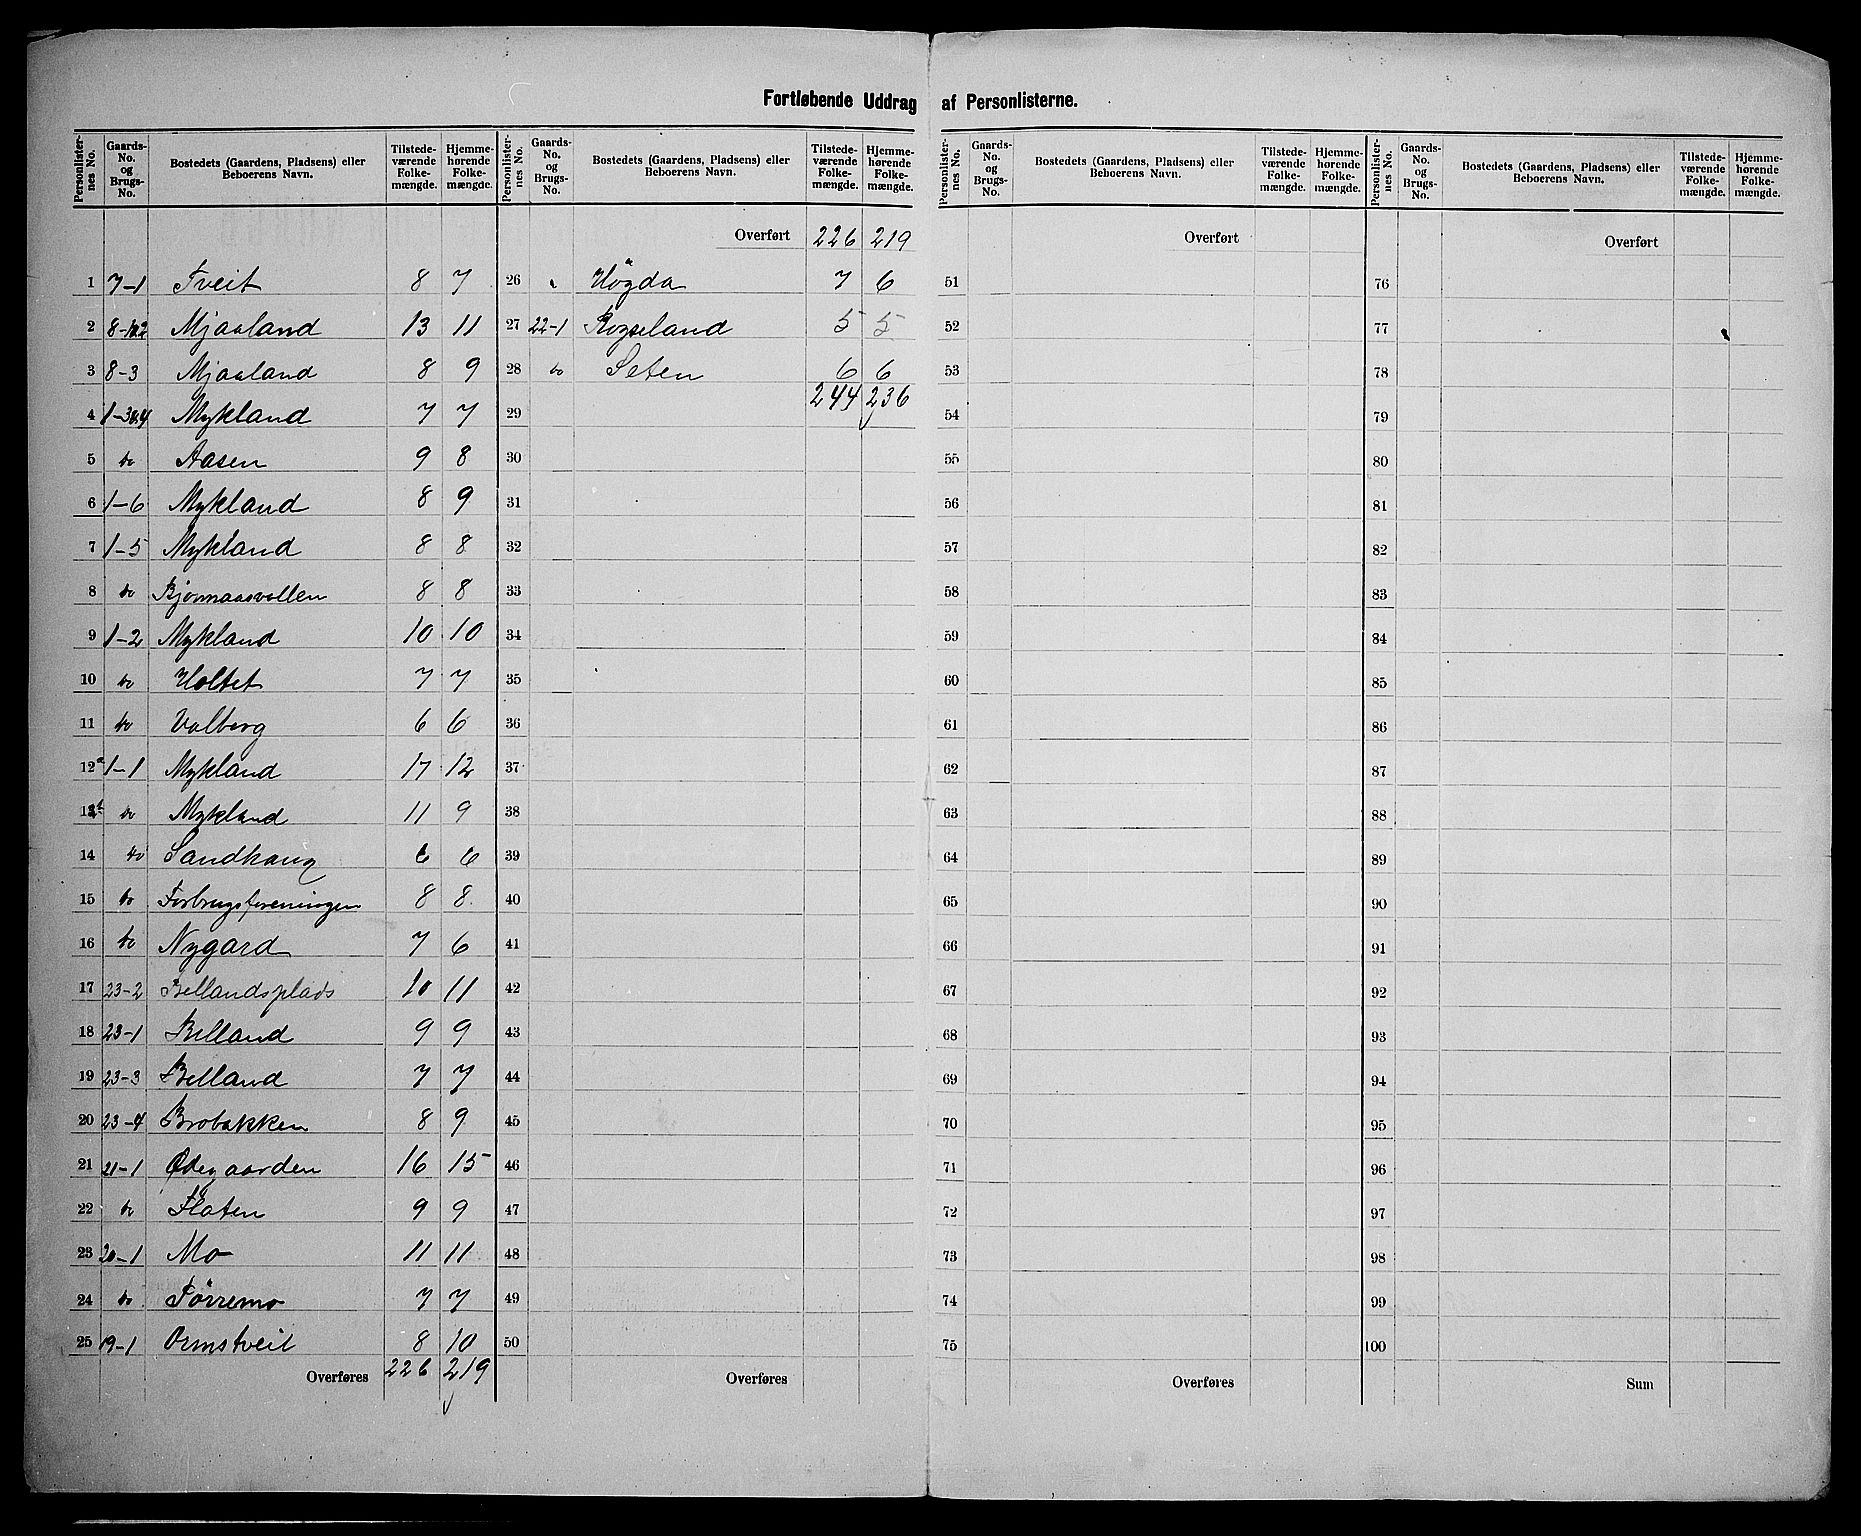 Fortløbende Uddrag af Personlisterne.
Personlisternes No. | Gaards-No. og Brugs-No. | Bostedets (Gaardens, Pladsens) eller Beboerens Navn. | Tilstedeværende Folkemængde. | Hjemmehørende Folkemængde.
1 7-1 Tveit 8 7
2 8-1o2 Mjaaland 13 11
3 8-3 Mjaaland 8 9
4 1-3o4 Mykland 7 7
5 do Aasen 9 8
6 1-6 Mykland 8 9
7 1-5 Mykland 8 8
8 do Bjørmaasvollen 8 8
9 1-2 Mykland 10 10
10 do Holtet 7 7
11 do Valberg 6 6
12a 1-1 Mykland 17 12
13 do Mykland 11 9
14 do Sandhaug 6 6
15 do Forbrugsforeningen 8 8
16 do Nygard 7 6
17 23-2 Bellandsplads 10 11
18 23-1 Belland 9 9
19 23-3 Belland 7 7
20 23-4 Brobakken 8 9
21 21-1 Ødegaarden 16 15
22 do Flaten 9 9
23 20-1 Mo 11 11
24 do Törremo 7 7
25 19-1 Ormstveit 8 10
Overføres 226 219
Personlisternes No. | Gaards-No. og Brugs-No. | Bostedets (Gaardens, Pladsens) eller Beboerens Navn. | Tilstedeværende Folkemængde. | Hjemmehørende Folkemængde.
Overført 226 219
26 " Högda 7 6
27 22-1 Rogseland 5 5
28 do Seten 6 6
244 236
29
30
31
32
33
34
35
36
37
38
39
40
41
42
43
44
45
46
47
48
49
50
Overføres
Personlisternes No. | Gaards-No. og Brugs-No. | Bostedets (Gaardens, Pladsens) eller Beboerens Navn. | Tilstedeværende Folkemængde. | Hjemmehørende Folkemængde.
Overført
51
52
53
54
55
56
57
58
59
60
61
62
63
64
65
66
67
68
69
70
71
72
73
74
75
Overføres
Personlisternes No. | Gaards-No. og Brugs-No. | Bostedets (Gaardens, Pladsens) eller Beboerens Navn. | Tilstedeværende Folkemængde. | Hjemmehørende Folkemængde.
Overført
76
77
78
79
80
81
82
83
84
85
86
87
88
89
90
91
92
93
94
95
96
97
98
99
100
Sum